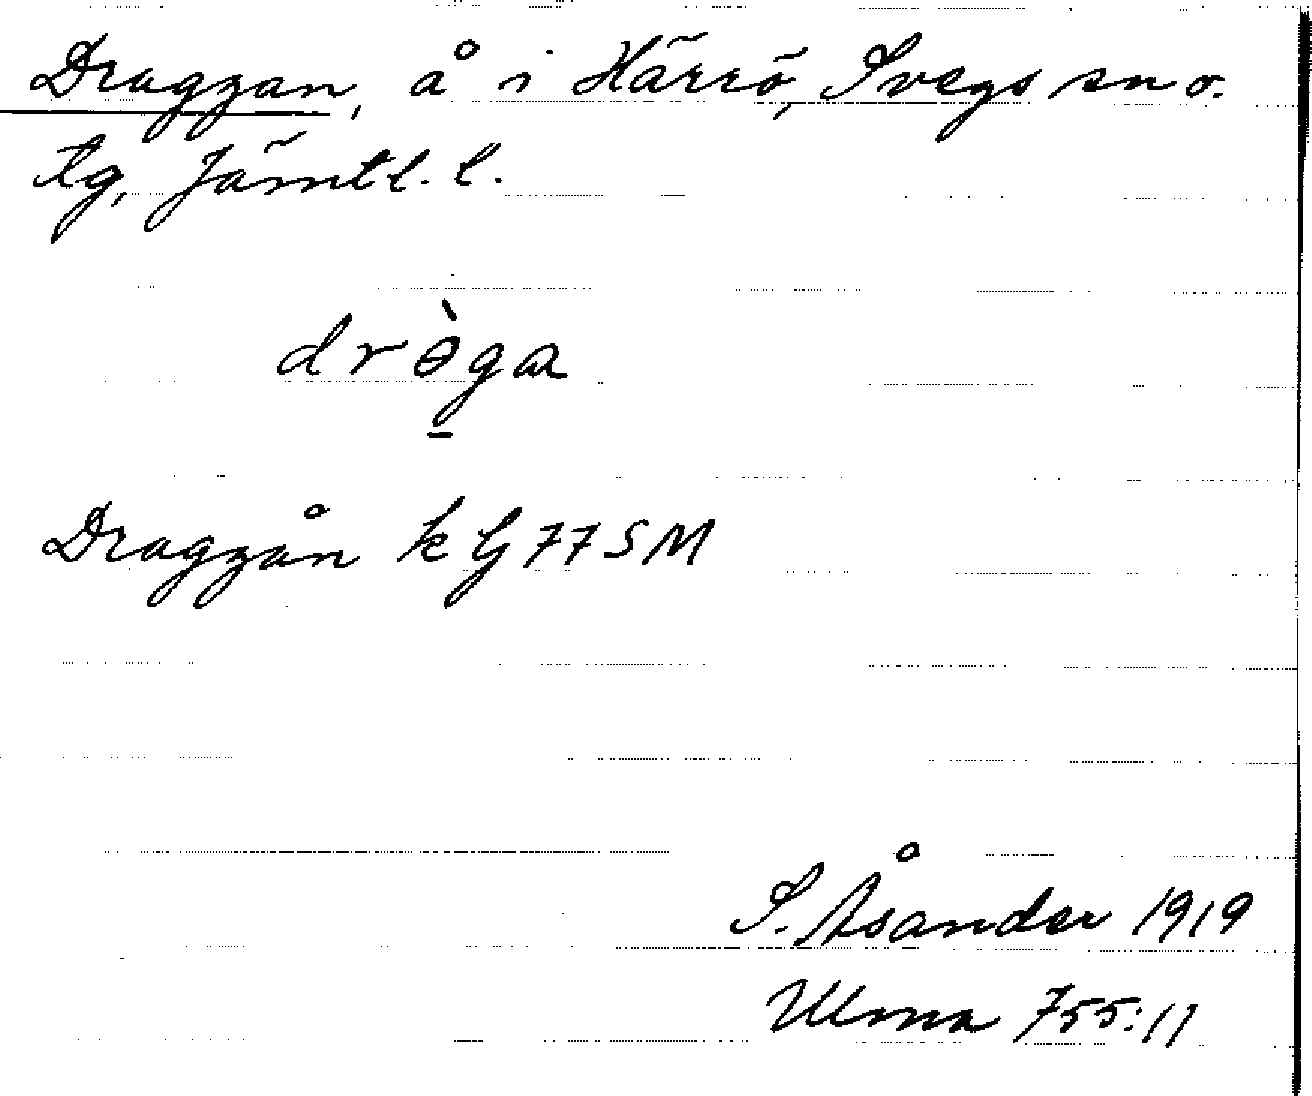 Draggan, å i Härrö, Svegs sn o.
tg, Jämtl. l.
drɵ̀ga
Draggån k G 77 SM
S. Åsander 1919
Ulma 755:11